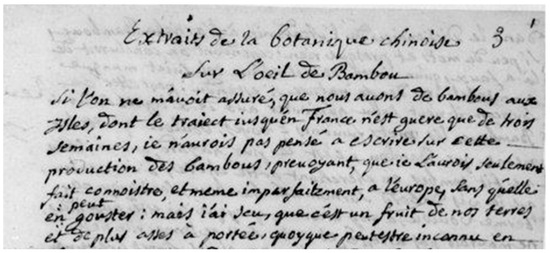 Extraits de la botanique chinoise 3 1
Sur L'oeil de Bambou
Si l'on ne m'avoit assuré, que nous avons de bambous aux
Isles, dont le traiect iusqu'en France n'est guere que de trois
semaines, ie n'aurois pas pensé a escrire sur cette
production des bambous; prevoyant, que ie L'aurois seulement
fait connoistre, et meme imparfaitement, a l'europe, sans qu'elle
peut
en gouster: mais i'ai seu, que c'est un fruit de nos terres
et de plus asses a portée, quoyque peutestre inconnu en